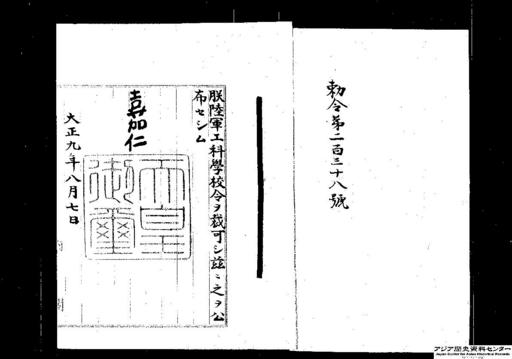 勅令第二百三十八號
朕陸軍工科學校令ヲ裁可シ茲ニ之ヲ公
布セシム
嘉仁
天皇
御璽
大正九年八月七日
アジア歴史資料センター
Japan Center for Asian Historical Records